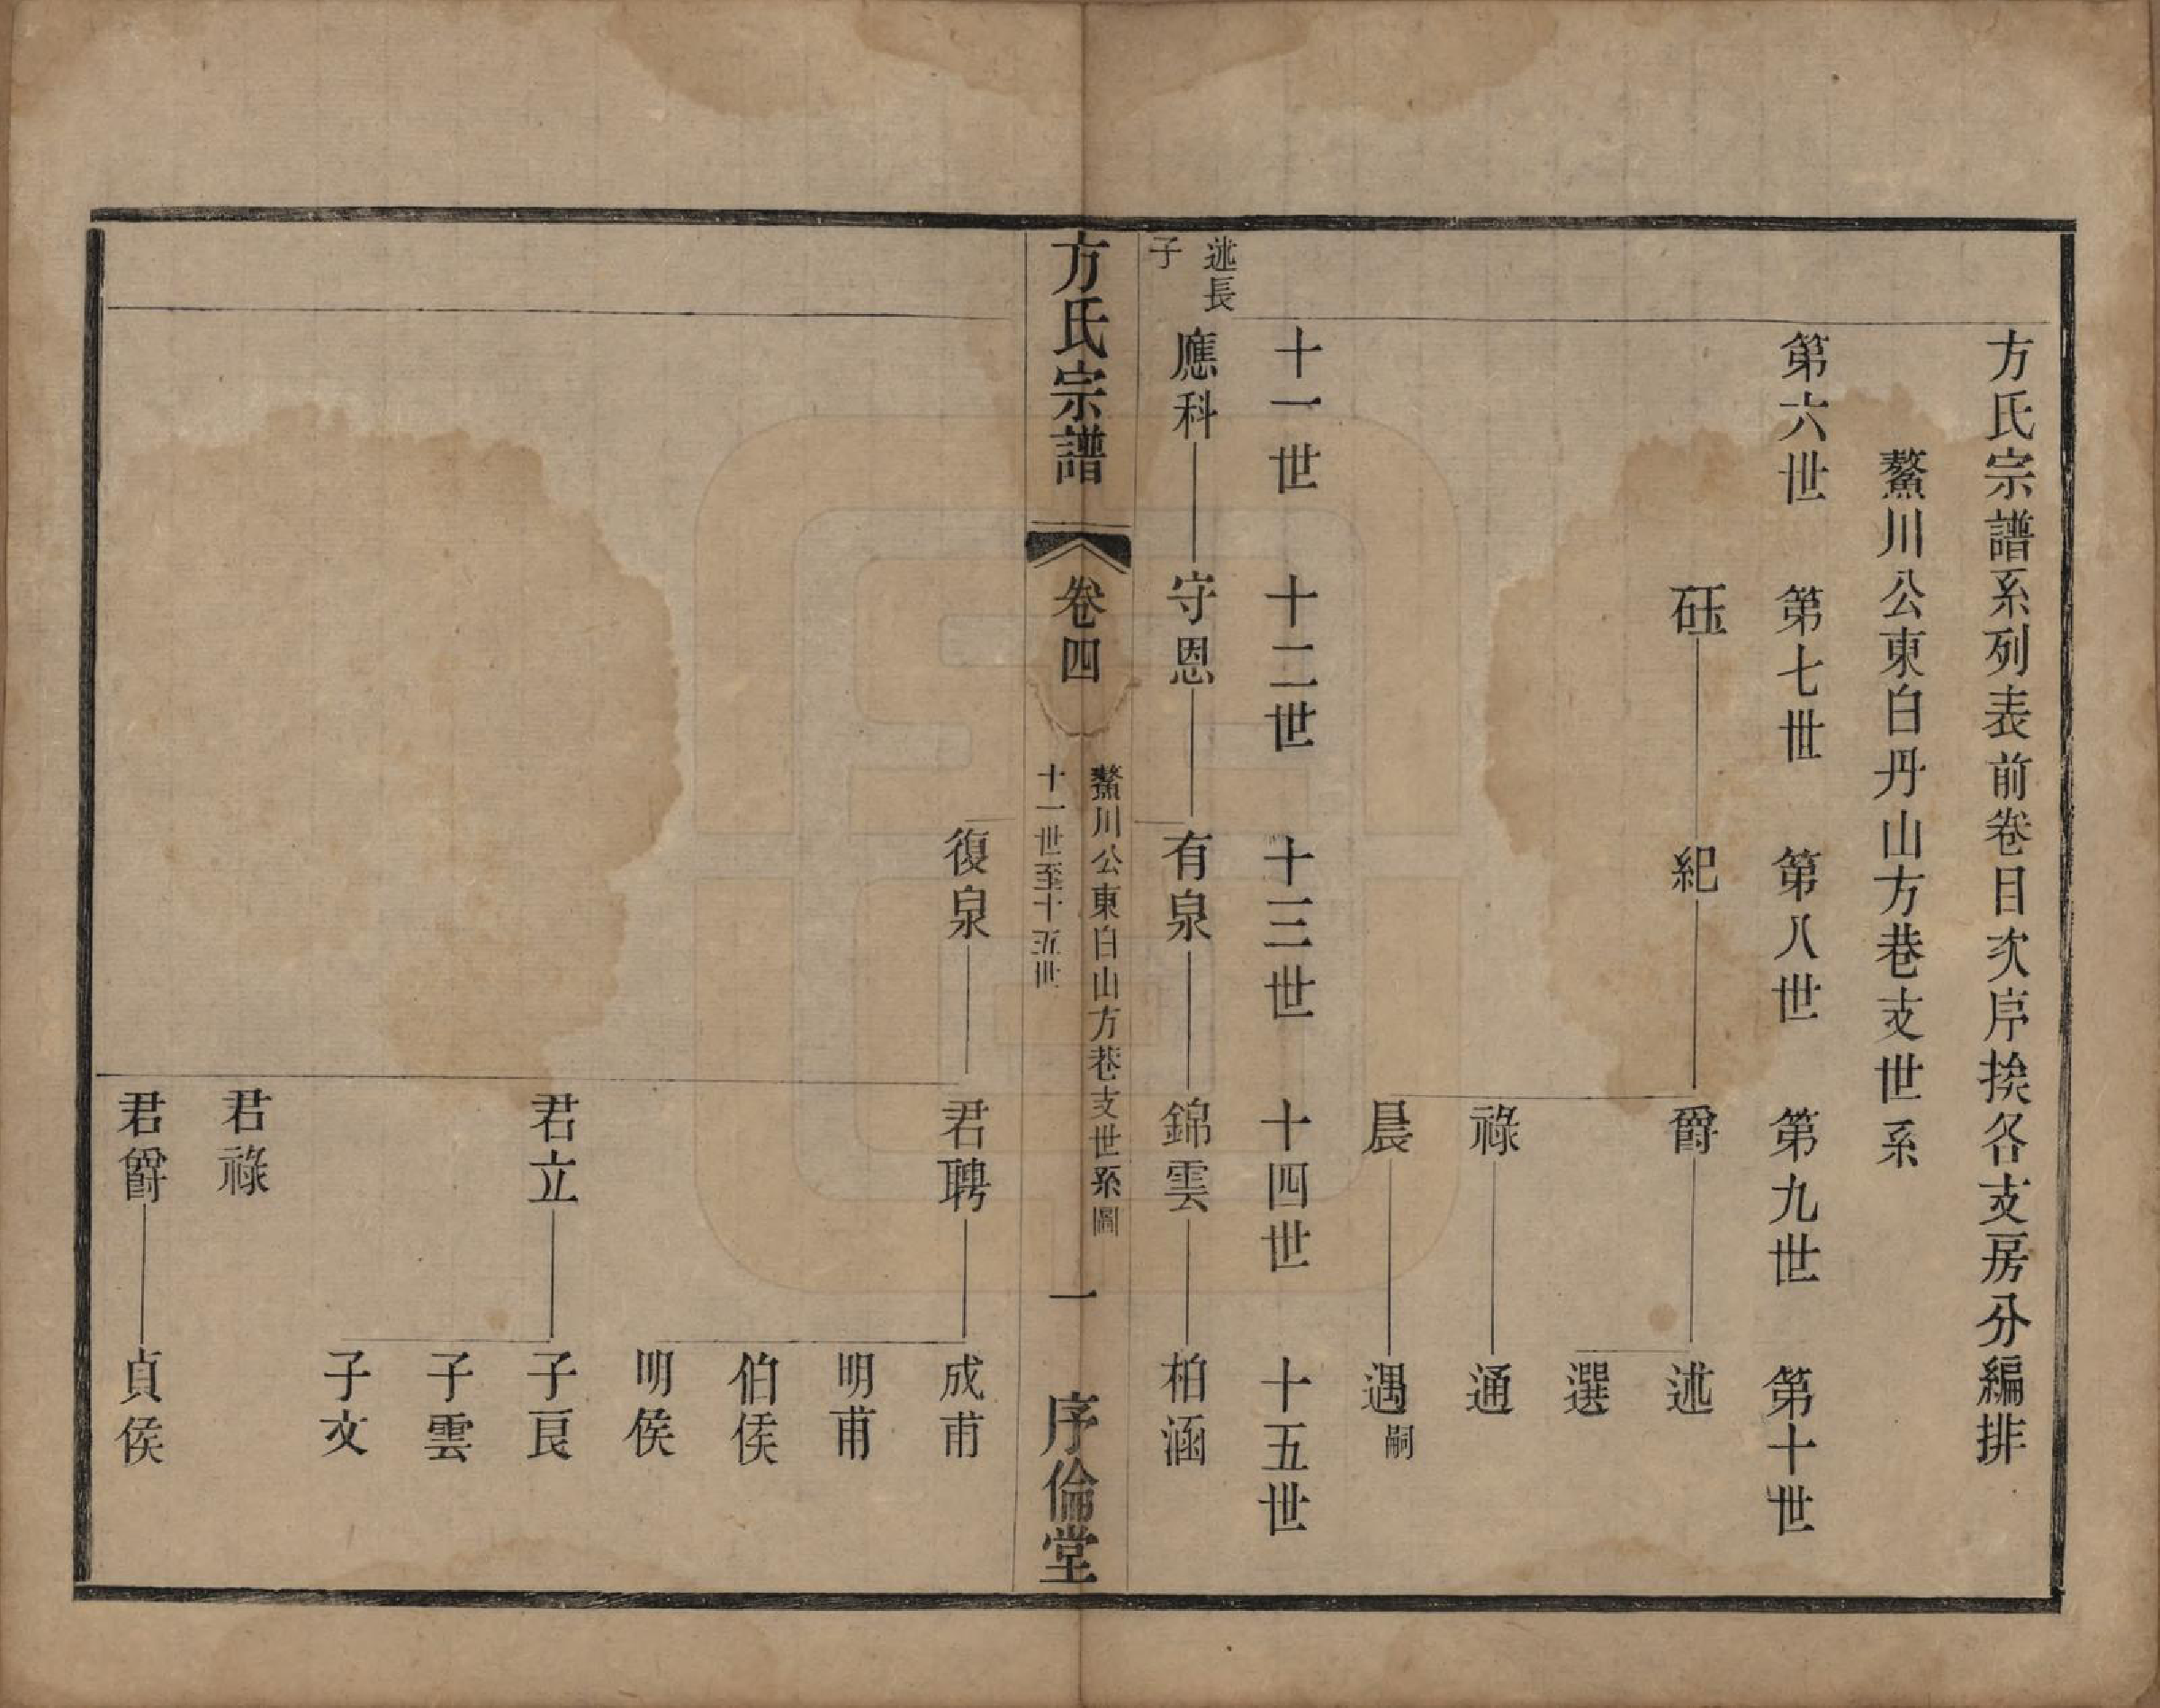 方氏宗譜系列表前卷目次序挨各支房分編排
鰲川公東白丹山方巷支世系
第六世　第七世　第八世　第九世　第十世
砡　紀　爵　述
選
祿　通
晨　遇嗣
十一世　十二世　十三世　十四世　十五世
述長
子
應科　守恩　有泉　錦雲　柏涵
方氏宗譜　卷四　鰲川公東白山方巷支世系圖　十一世至十五世　一　序倫堂
復泉　君聘　成甫
明甫
伯侯
明侯
君立　子良
子雲
子文
君祿
君爵　貞侯